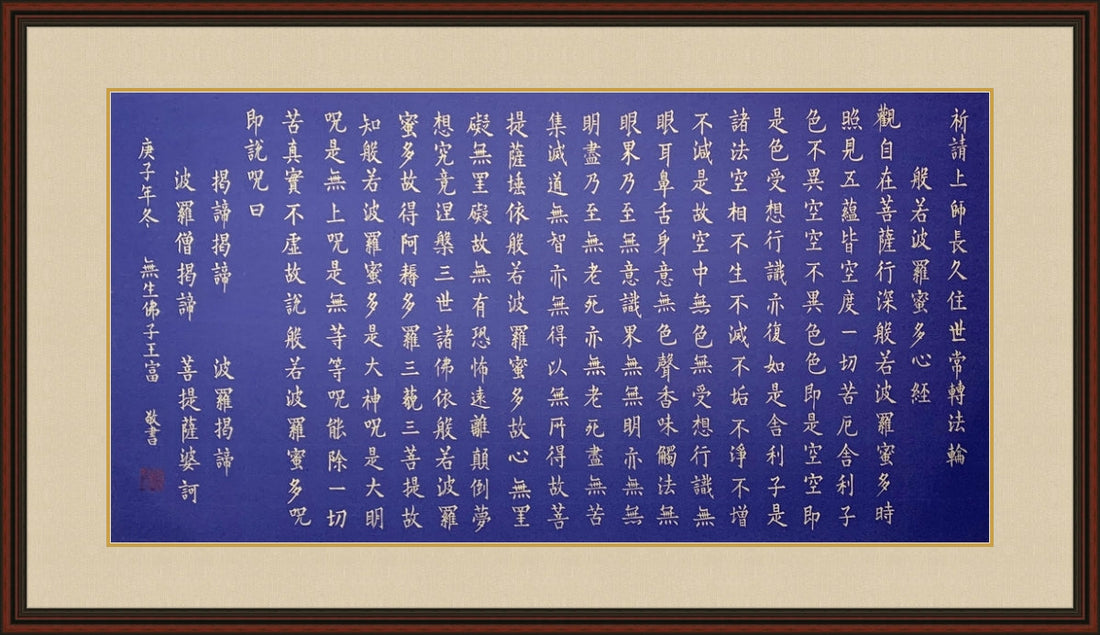 祈請上師長久住世常轉法輪
般若波羅蜜多心経
觀自在菩薩行深般若波羅蜜多時
照見五蘊皆空度一切苦厄舍利子
色不異空空不異色色即是空空即
是色受想行識亦復如是舍利子是
諸法空相不生不滅不垢不淨不增
不減是故空中無色無受想行識無
眼耳鼻舌身意無色聲香味觸法無
眼果乃至無意識果無無明亦無無
明盡乃至無老死亦無老死盡無苦
集滅道無智亦無得以無所得故菩
提薩埵依般若波羅蜜多故心無罣
礙無罣礙故無有恐怖遠離顛倒夢
想究竟涅槃三世諸佛依般若波羅
蜜多故得阿耨多羅三藐三菩提故
知般若波羅蜜多是大神呪是大明
呪是無上呪是無等等呪能除一切
苦真實不虛故說般若波羅蜜多呪
即說呪曰
揭諦揭諦 波羅揭諦
波羅僧揭諦 菩提薩婆訶
庚子年冬 無生佛子王富 敬書